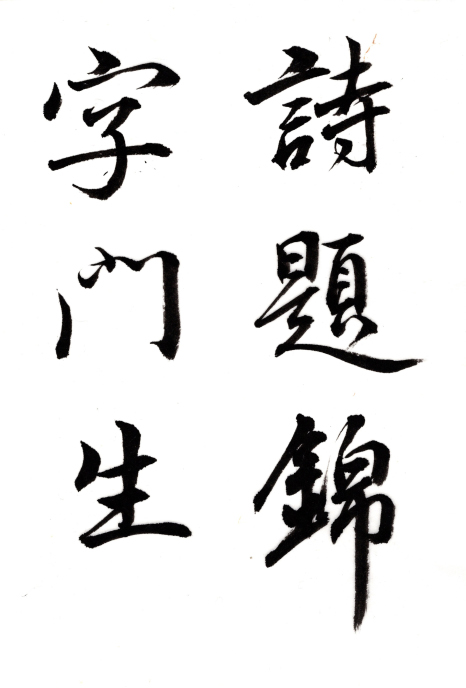 詩題錦
字門生